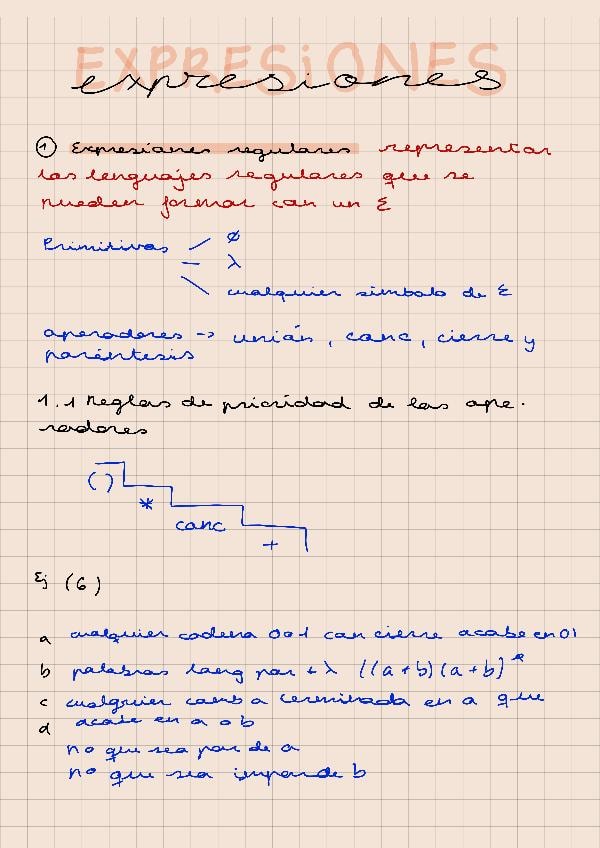 EXPRESiONES
expresiones
① Expresiones regulares representan
los lenguajes regulares que se
pueden formar con un Σ
Primitivas
∅
λ
cualquier símbolo de Σ
operadores -> unión, conc, cierre y
paréntesis
1.1 Reglas de prioridad de los ope-
radores
()
*
conc
+
Ej (6)
a cualquier cadena 0 o 1 con cierre acabe en 01
b palabras long par + λ ((a+b)(a+b)*
c cualquier comb a terminada en a que
d acabe en a o b
no que sea par de a
no que sea impar de b